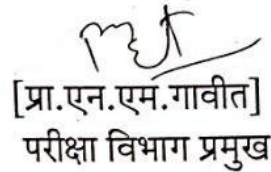 [प्रा.एन.एम.गावीत]
परीक्षा विभाग प्रमुख